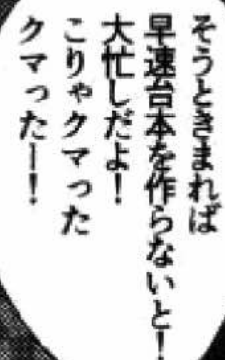 そうときまれば
早速台本を作らないと！
大忙しだよ！
こりゃクマった
クマったー！